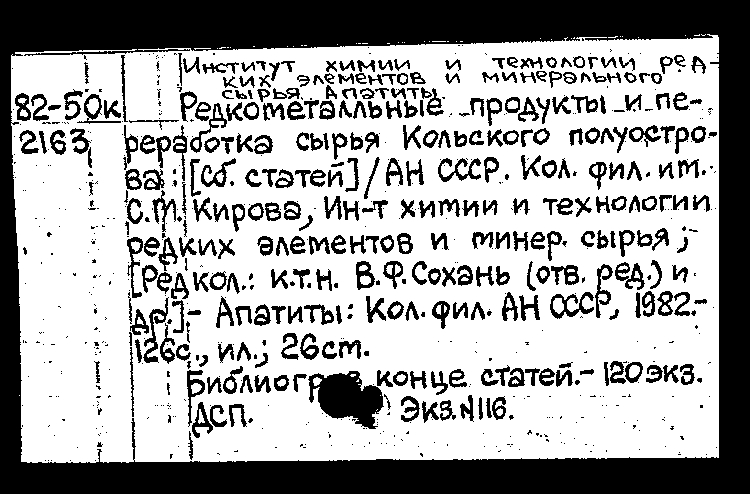 Институт химии и технологии ред-
ких элементов и минерального
сырья. Апатиты.
82-50к Редкометалльные продукты и пе-
2163 реработка сырья Кольского полуостро-
ва: [Сб. статей] / АН СССР. Кол. фил. им.
С.М. Кирова, Ин-т химии и технологии
редких элементов и минер. сырья;
[Редкол.: к.т.н. В.Ф. Сохань (отв. ред.) и
др.] - Апатиты: Кол. фил. АН СССР, 1982.-
126с., ил.; 26cm.
конце статей. - 120 экз.
ДСП. Экз. N116.